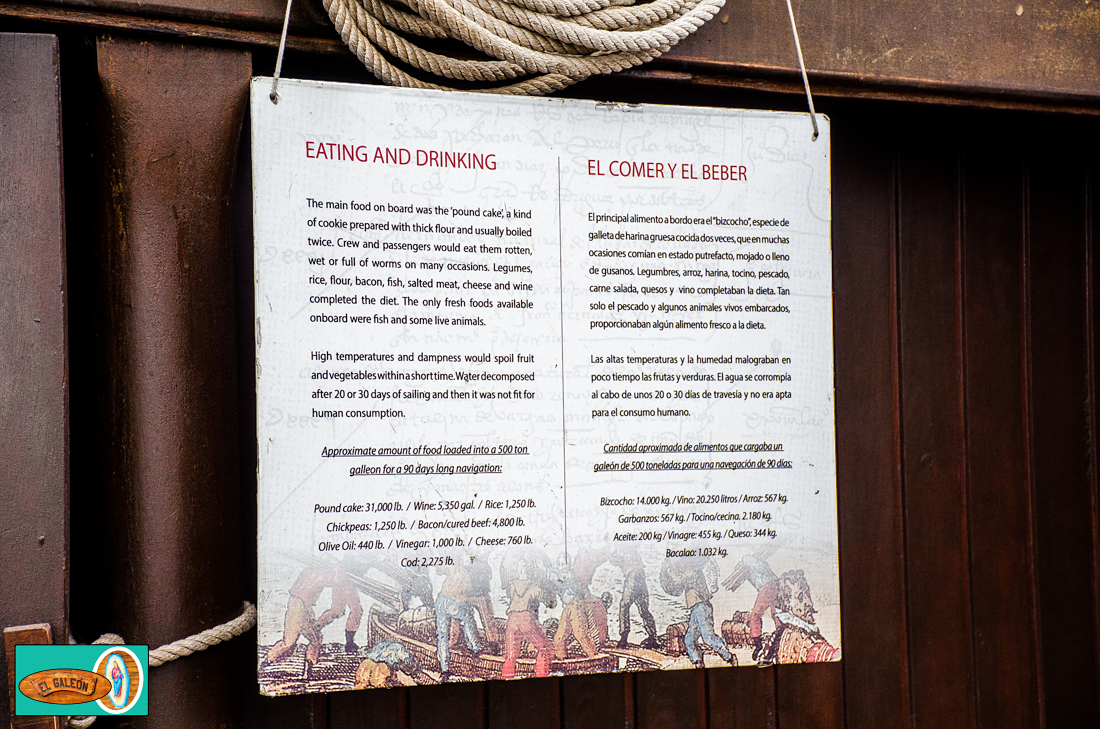 EATING AND DRINKING
The main food on board was the 'pound cake', a kind
of cookie prepared with thick flour and usually boiled
twice. Crew and passengers would eat them rotten,
wet or full of worms on many occasions. Legumes,
rice, flour, bacon, fish, salted meat, cheese and wine
completed the diet. The only fresh foods available
onboard were fish and some live animals.
High temperatures and dampness would spoil fruit
and vegetables within a short time. Water decomposed
after 20 or 30 days of sailing and then it was not fit for
human consumption.
Approximate amount of food loaded into a 500 ton
galleon for a 90 days long navigation:
Pound cake: 31,000 lb. / Wine: 5,350 gal. / Rice: 1,250 lb.
Chickpeas: 1,250 lb. / Bacon/cured beef: 4,800 lb.
Olive Oil: 440 lb. / Vinegar: 1,000 lb. / Cheese: 760 lb.
Cod: 2,275 lb.
EL COMER Y EL BEBER
El principal alimento a bordo era el "bizcocho", especie de
galleta de harina gruesa cocida dos veces, que en muchas
ocasiones comían en estado putrefacto, mojado o lleno
de gusanos. Legumbres, arroz, harina, tocino, pescado,
carne salada, quesos y vino completaban la dieta. Tan
solo el pescado y algunos animales vivos embarcados,
proporcionaban algún alimento fresco a la dieta.
Las altas temperaturas y la humedad malograban en
poco tiempo las frutas y verduras. El agua se corrompía
al cabo de unos 20 o 30 días de travesía y no era apta
para el consumo humano.
Cantidad aproximada de alimentos que cargaba un
galeón de 500 toneladas para una navegación de 90 días:
Bizcocho: 14.000 kg. / Vino: 20.250 litros / Arroz: 567 kg.
Garbanzos: 567 kg. / Tocino/cecina. 2.180 kg.
Aceite: 200 kg / Vinagre: 455 kg. / Queso: 344 kg.
Bacalao: 1.032 kg.
EL GALEÓN